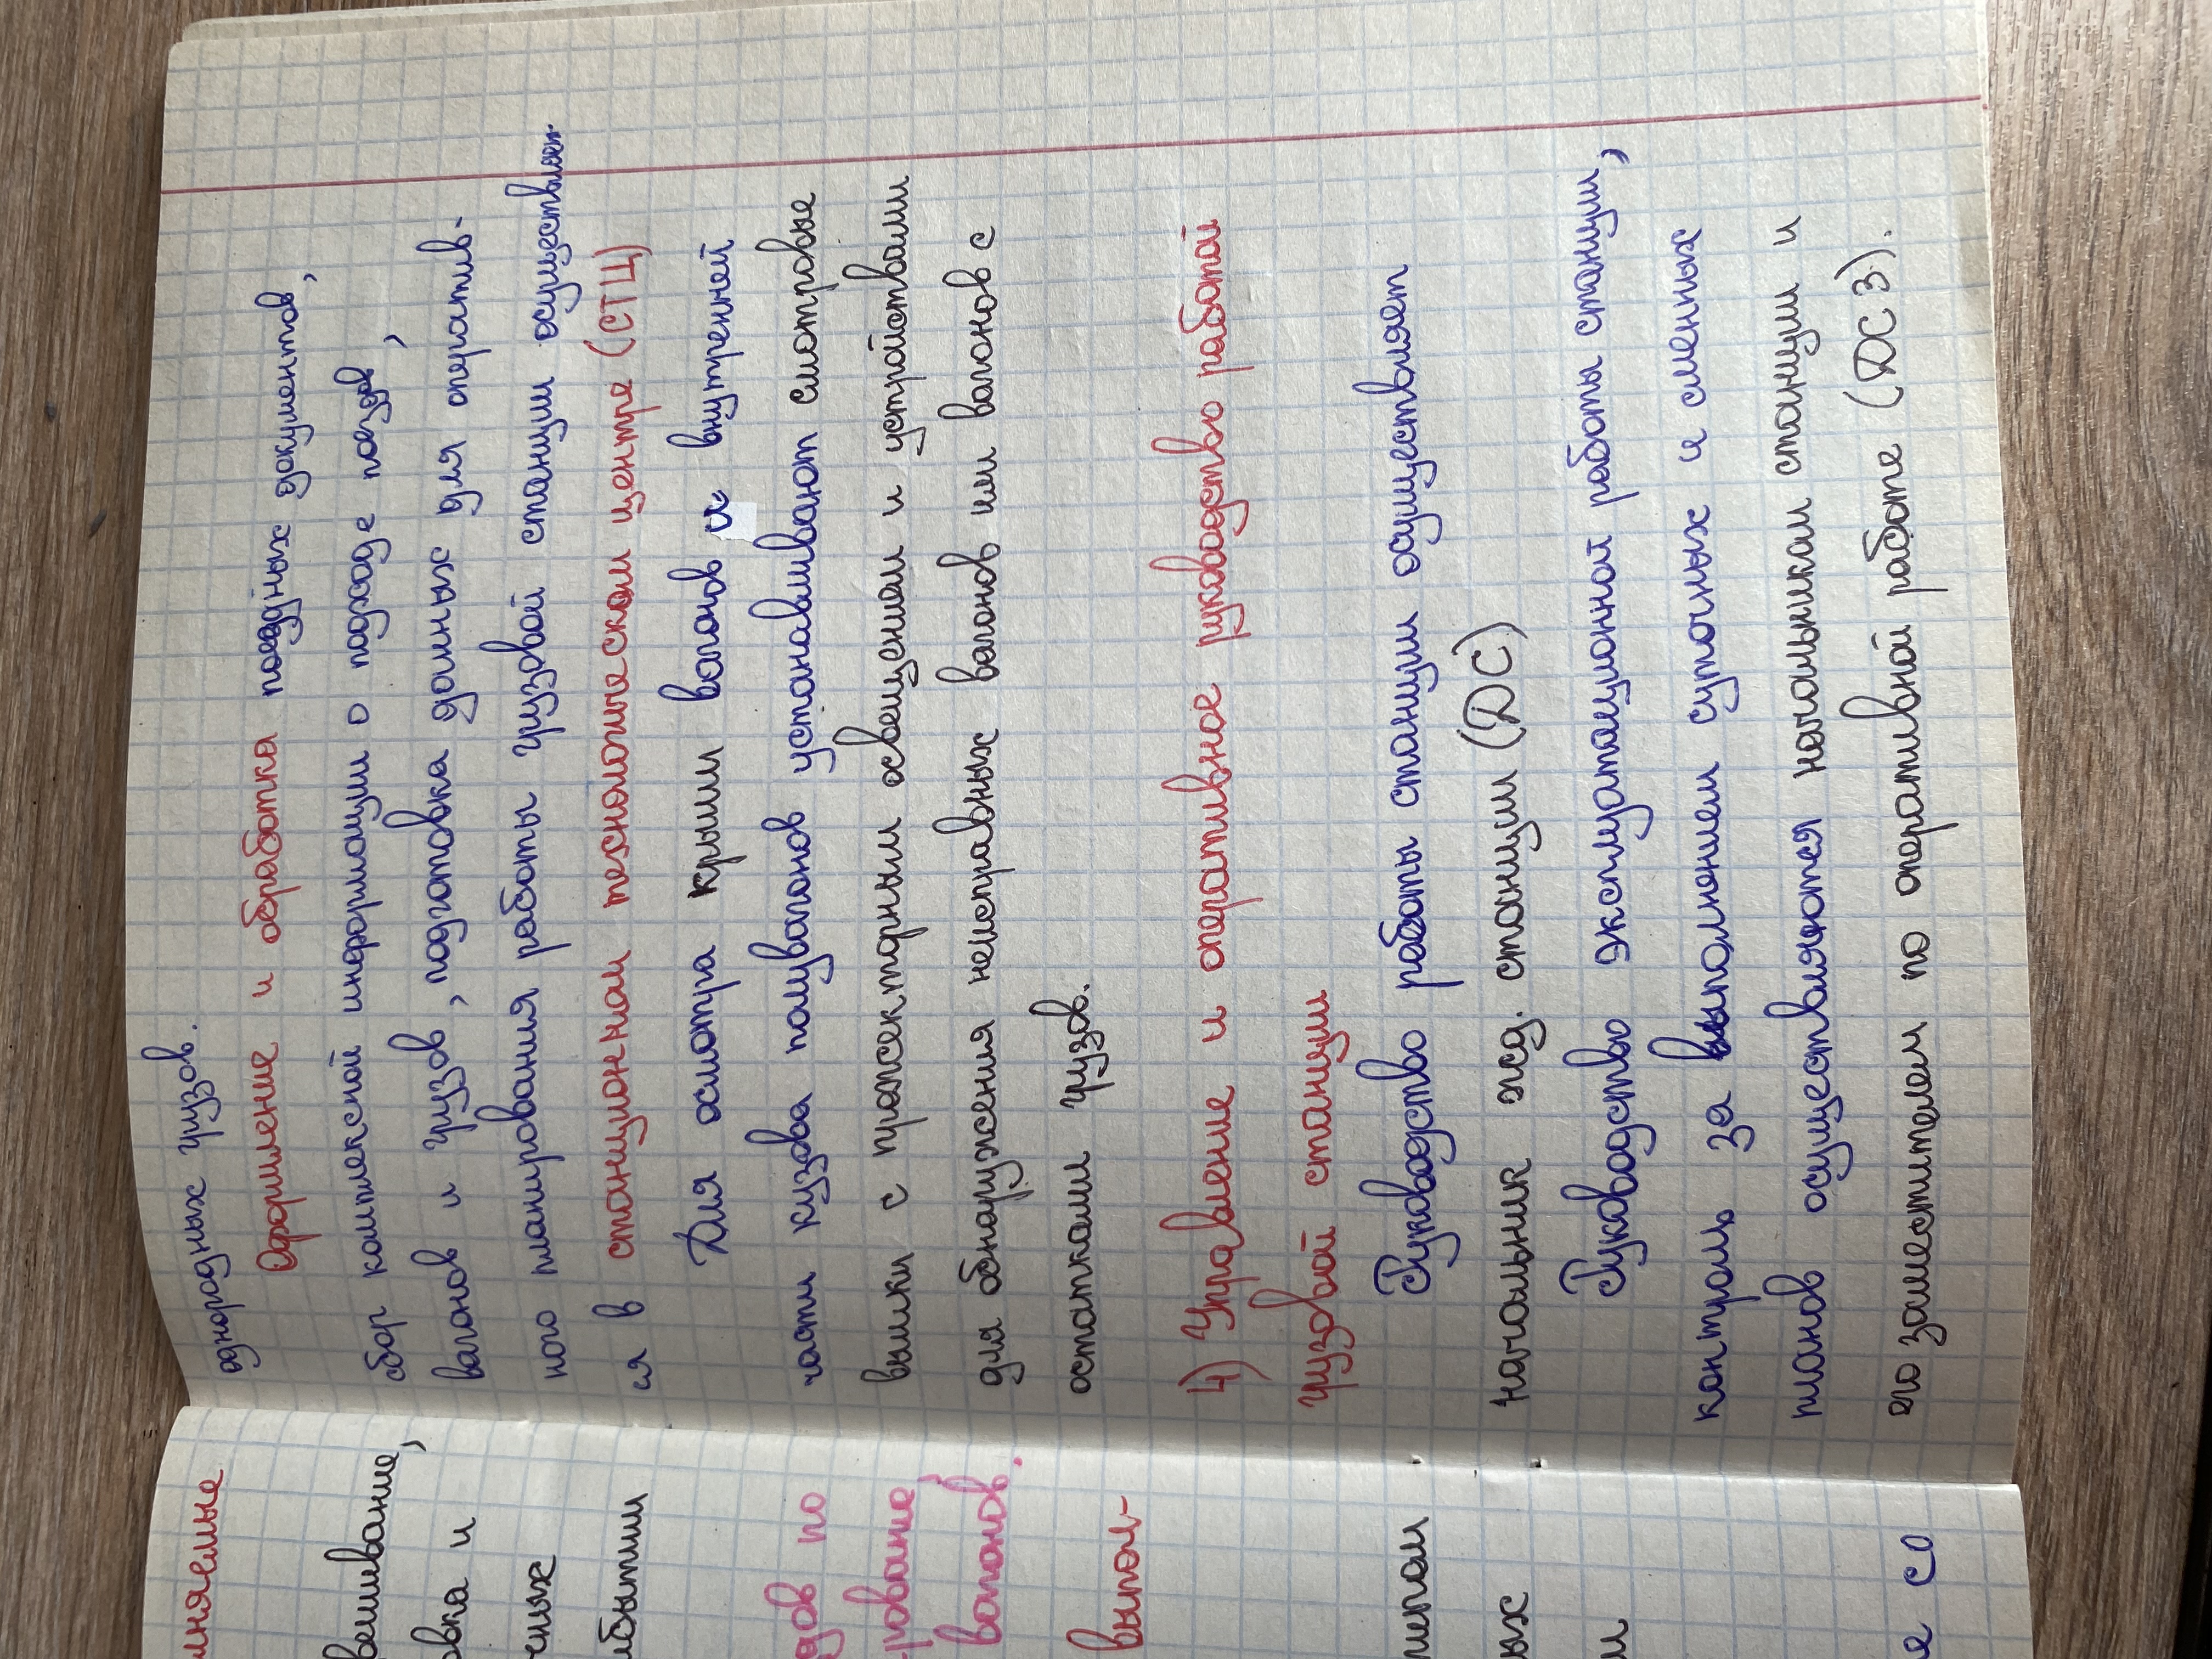 однородных грузов.
Оформление и обработка поездных документов,
сбор комплексной информации о подходе поездов,
вагонов и грузов, подготовка данных для оператив-
ного планирования работы грузовой станции осуществляет-
ся в станционном технологическом центре (СТЦ)
Для осмотра крыши вагонов и внутренней
части кузова полувагонов устанавливают смотровые
вышки с прожекторным освещением и устройствами
для обнаружения неисправных вагонов или вагонов с
остатками груз.
4) Управление и оперативное руководство работой
грузовой станции
Руководство работы станции осуществляет
начальник жд. станции (ДС)
Руководство эксплуатационной работы станции,
контроль за выполнением суточных и сменных
планов осуществляются начальником станции и
его заместителем по оперативной работе (ДСЗ).
лняемые
вешивание,
овка и
ибытии
дов по
вагонов.
выпол-
ых
е со